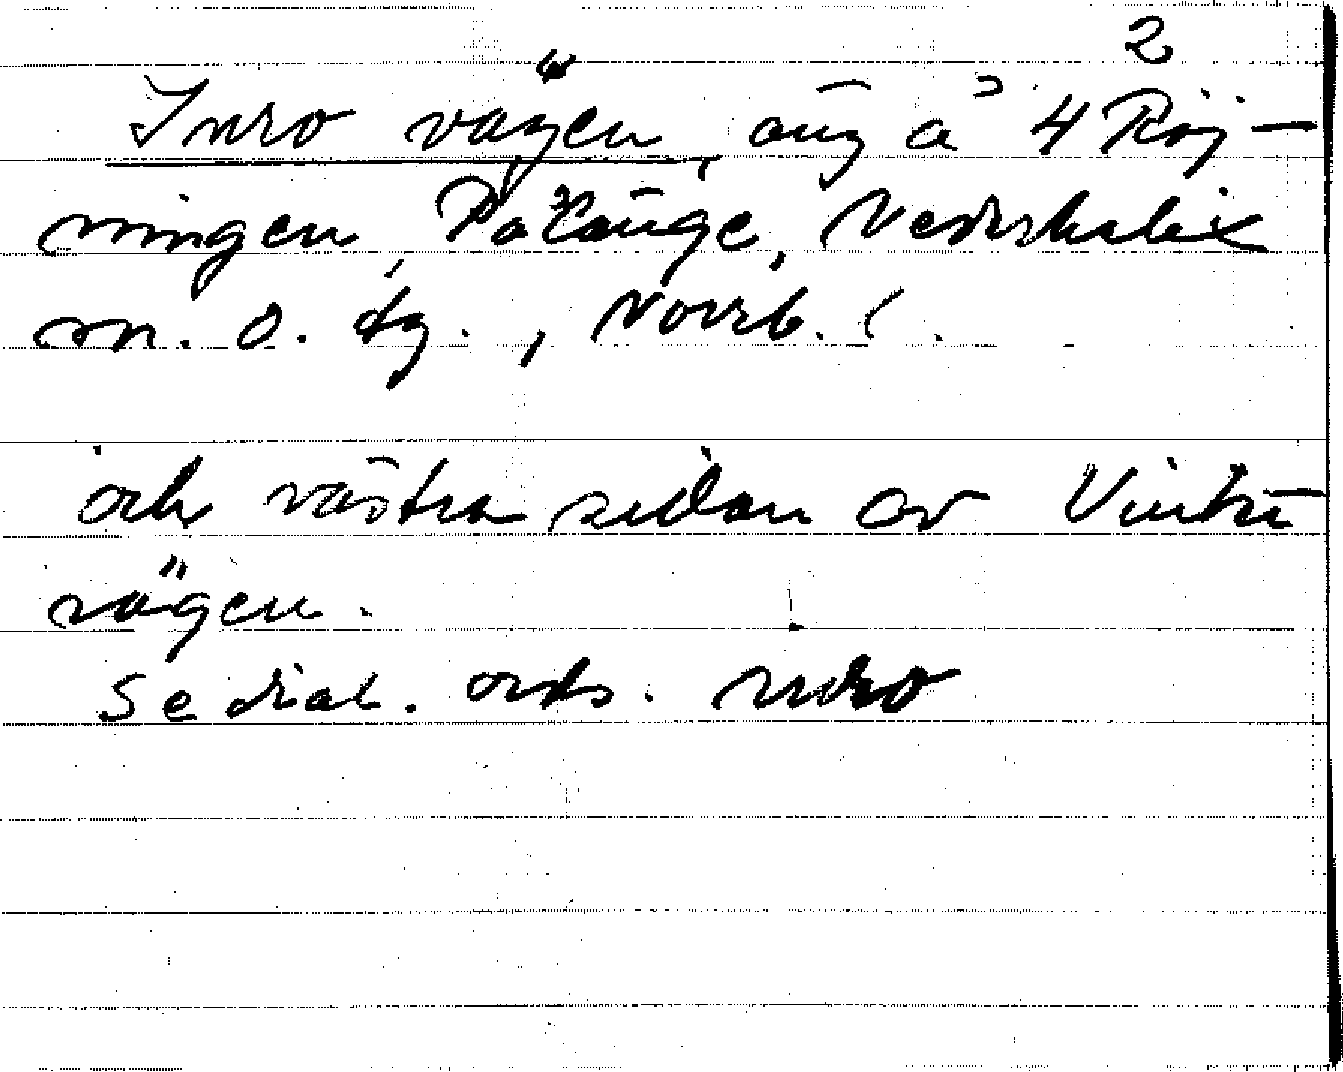 2
Inro vägen, äng å 4 Röj-
ningen, Påränge, Nederkalix
sn. o. tg., Norrb. l.
och västra sidan av Vintra
vägen.
Se dial. ords. inro